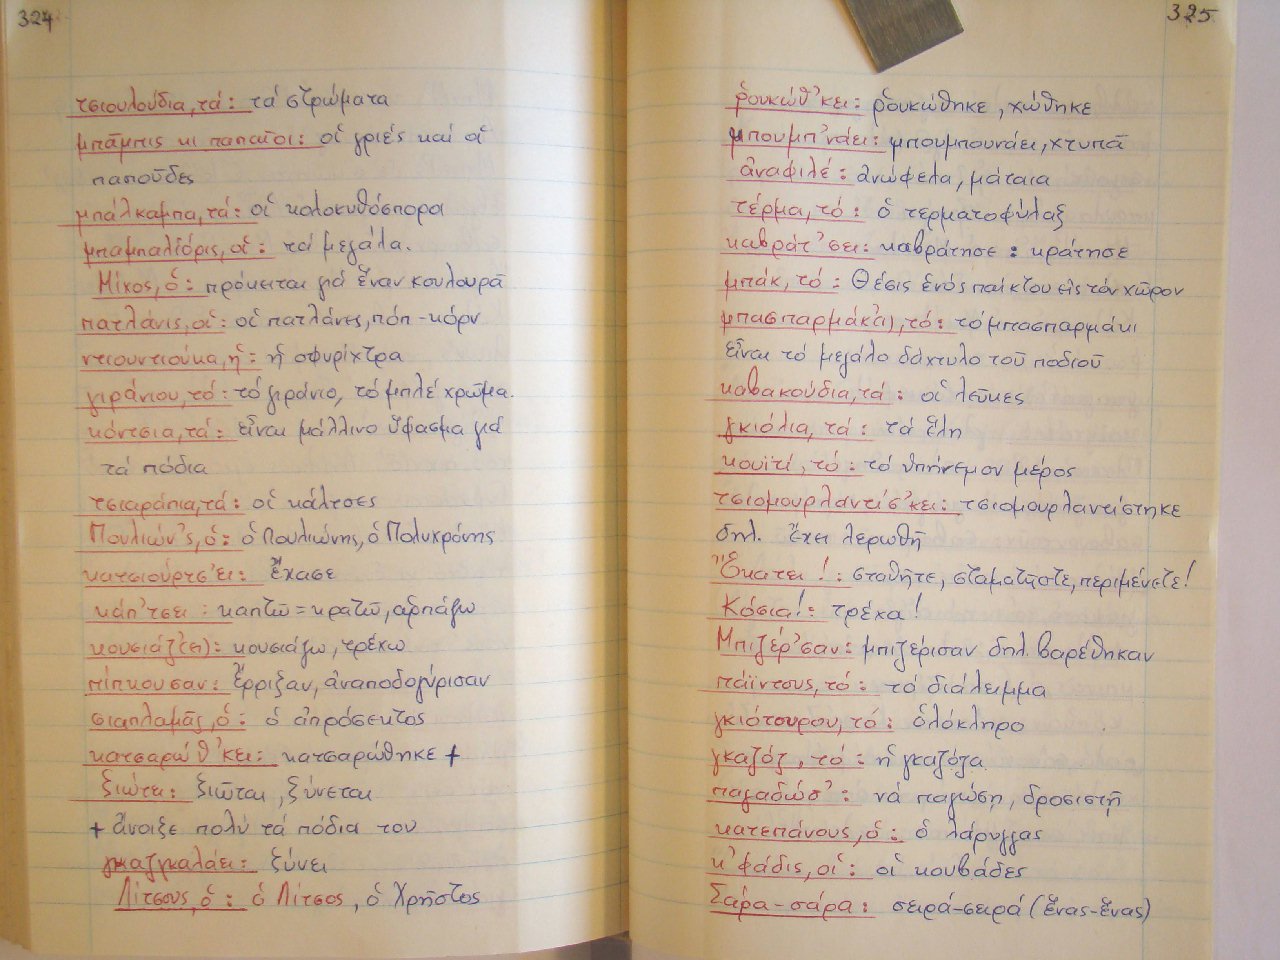 324
τσιουλούδια, τά: τά στρώματα
μπᾶμπις κι παπαῖοι: οἱ γριές καί οἱ
παποῦδες
μπάλκαμπα, τά: οἱ καλοκυθόσποροι
μπαμπαλιόρις, οἱ: τά μεγάλα.
Μίχος, ὁ: πρόκειται γιά ἕναν κουλουρᾶ
πατλάνις, οἱ: οἱ πατλάνες, πόπ-κόρν
ντιουντιούκα, ἡ: ἡ σφυρίχτρα
γιράνιου, τό: τό γεράνιο, τό μπλέ χρῶμα.
κόντσια, τά: εἶναι μάλλινο ὕφασμα γιά
τά πόδια
τσιαράπια, τά: οἱ κάλτσες
Πουλιών'ς, ὁ: ὁ Πουλιώνης, ὁ Πολυχρόνης
κατσιούρτσ'ει: ἔχασε
κάπ'τσει: καπτῶ = κρατῶ, αρπάζω
κουσιάζ'(ει): κουσιάζω, τρέχω
πίπκουσαν: Ἔρριξαν, ἀναποδογύρισαν
σιαπλαμᾶς, ὁ: ὁ ἀπρόσεκτος
κατσαρώθ'κει: κατσαρώθηκε +
ξιώτει: ξιῶται, ξύνεται
+ ἄνοιξε πολύ τά πόδια του
γκαζγκαλάει: ξύνει
Λίτσους, ὁ: ὁ Λίτσος, ὁ Χρῆστος
325
ῥουκώθ'κει: ῥουκώθηκε, χώθηκε
μπουμπ'νάει: μπουμπουνάει, χτυπᾶ
ἀναφιλέ: ἀνώφελα, μάταια
τέρμα, τό: ὁ τερματοφύλαξ
καβράτ'σει: καβράτησε: κράτησε
μπάκ, τό: Θέσις ἑνός παίκτου εἰς τόν χῶρον
μπασπαρμάκ(ι), τό: τό μπασπαρμάκι
εἶναι τό μεγάλο δάχτυλο τοῦ ποδιοῦ
καβακούδια, τά: οἱ λεῦκες
γκιόλια, τά: τά ἕλη
κουϊτί, τό: τό ὑπήνεμον μέρος
τσιομουρλαντίσ'κει: τσιομουρλαντίστηκε
δηλ. Ἔχει λερωθῆ
Ἕκατει!: σταθῆτε, σταματῆστε, περιμένετε!
Κόσια!: τρέχα!
Μπιζέρ'σαν: μπιζέρισαν δηλ. βαρέθηκαν
πάϊντους, τό: τό διάλειμμα
γκιότουρου, τό: ὁλόκληρο
γκαζόζ, τό: ἡ γκαζόζα
παγαδώσ': νά παγώση, δροσιστῆ
κατεπάνους, ὁ: ὁ λάρυγγας
κ'φάδις, οἱ: οἱ κουβάδες
Σάρα-σάρα: σειρά-σειρά (ἕνας-ἕνας)